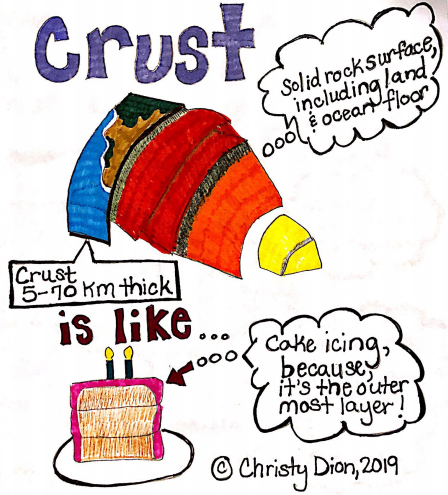 Crust
Solid rock surface,
including land
& ocean floor
Crust
5-70 Km thick
is like...
Cake icing,
because,
it's the outer
most layer!
© Christy Dion, 2019